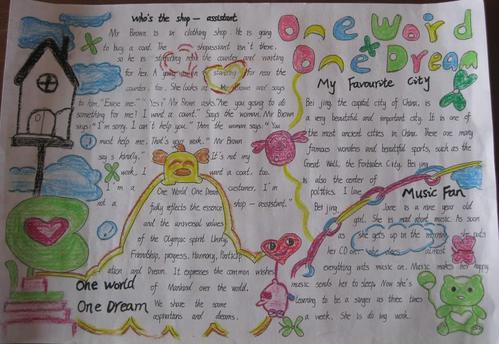 Who's the shop — assistant
Mr Brown is in clothing shop. He is going
to buy a coat. The shopassistant isn't there,
so he is the counter and waiting
for her. A standing far near the
counter too. She looks at Mr Brown and says
to him, "Excuse me." "Yes?" Mr Brown asks. "Are you going to do
something for me? I want a coat." Says the woman. Mr Brown
says: "I'm sorry. I can't help you." Then the woman says: "You
must help me. That's your work." Mr Brown
say s kindly, It's not my
work, I want a coat, too.
I'm a customer, I'm
not a shop — assistant."
One World One Dream
fully reflects the essence
and the universal values
of the Olympic spirit Unity,
Friendship, progress, Harmony, Particip
ation and Dream. It expresses the common wishes
of Mankind over the world.
We share the same
aspirations and dreams.
One world
One Dream
One World
One Dream
My Favourite City
Bei jing, the capital city of China, is
a very beautiful and important city. It is one of
the most ancient cities in China. There are many
famous wonders and beautiful sports, such as the
Great Wall, the Forbidden City. Bei jing
is also the center of
politics. I love
Bei jing.
Music Fan
Jane is a nine year old
girl. She is mad about music. As soon
as she gets up in the morning, she puts
her CD almost
everything with music on. Music makes her happy
music sends her to sleep. Now she's
learning to be a singer as three times
a week. She is do ing work.